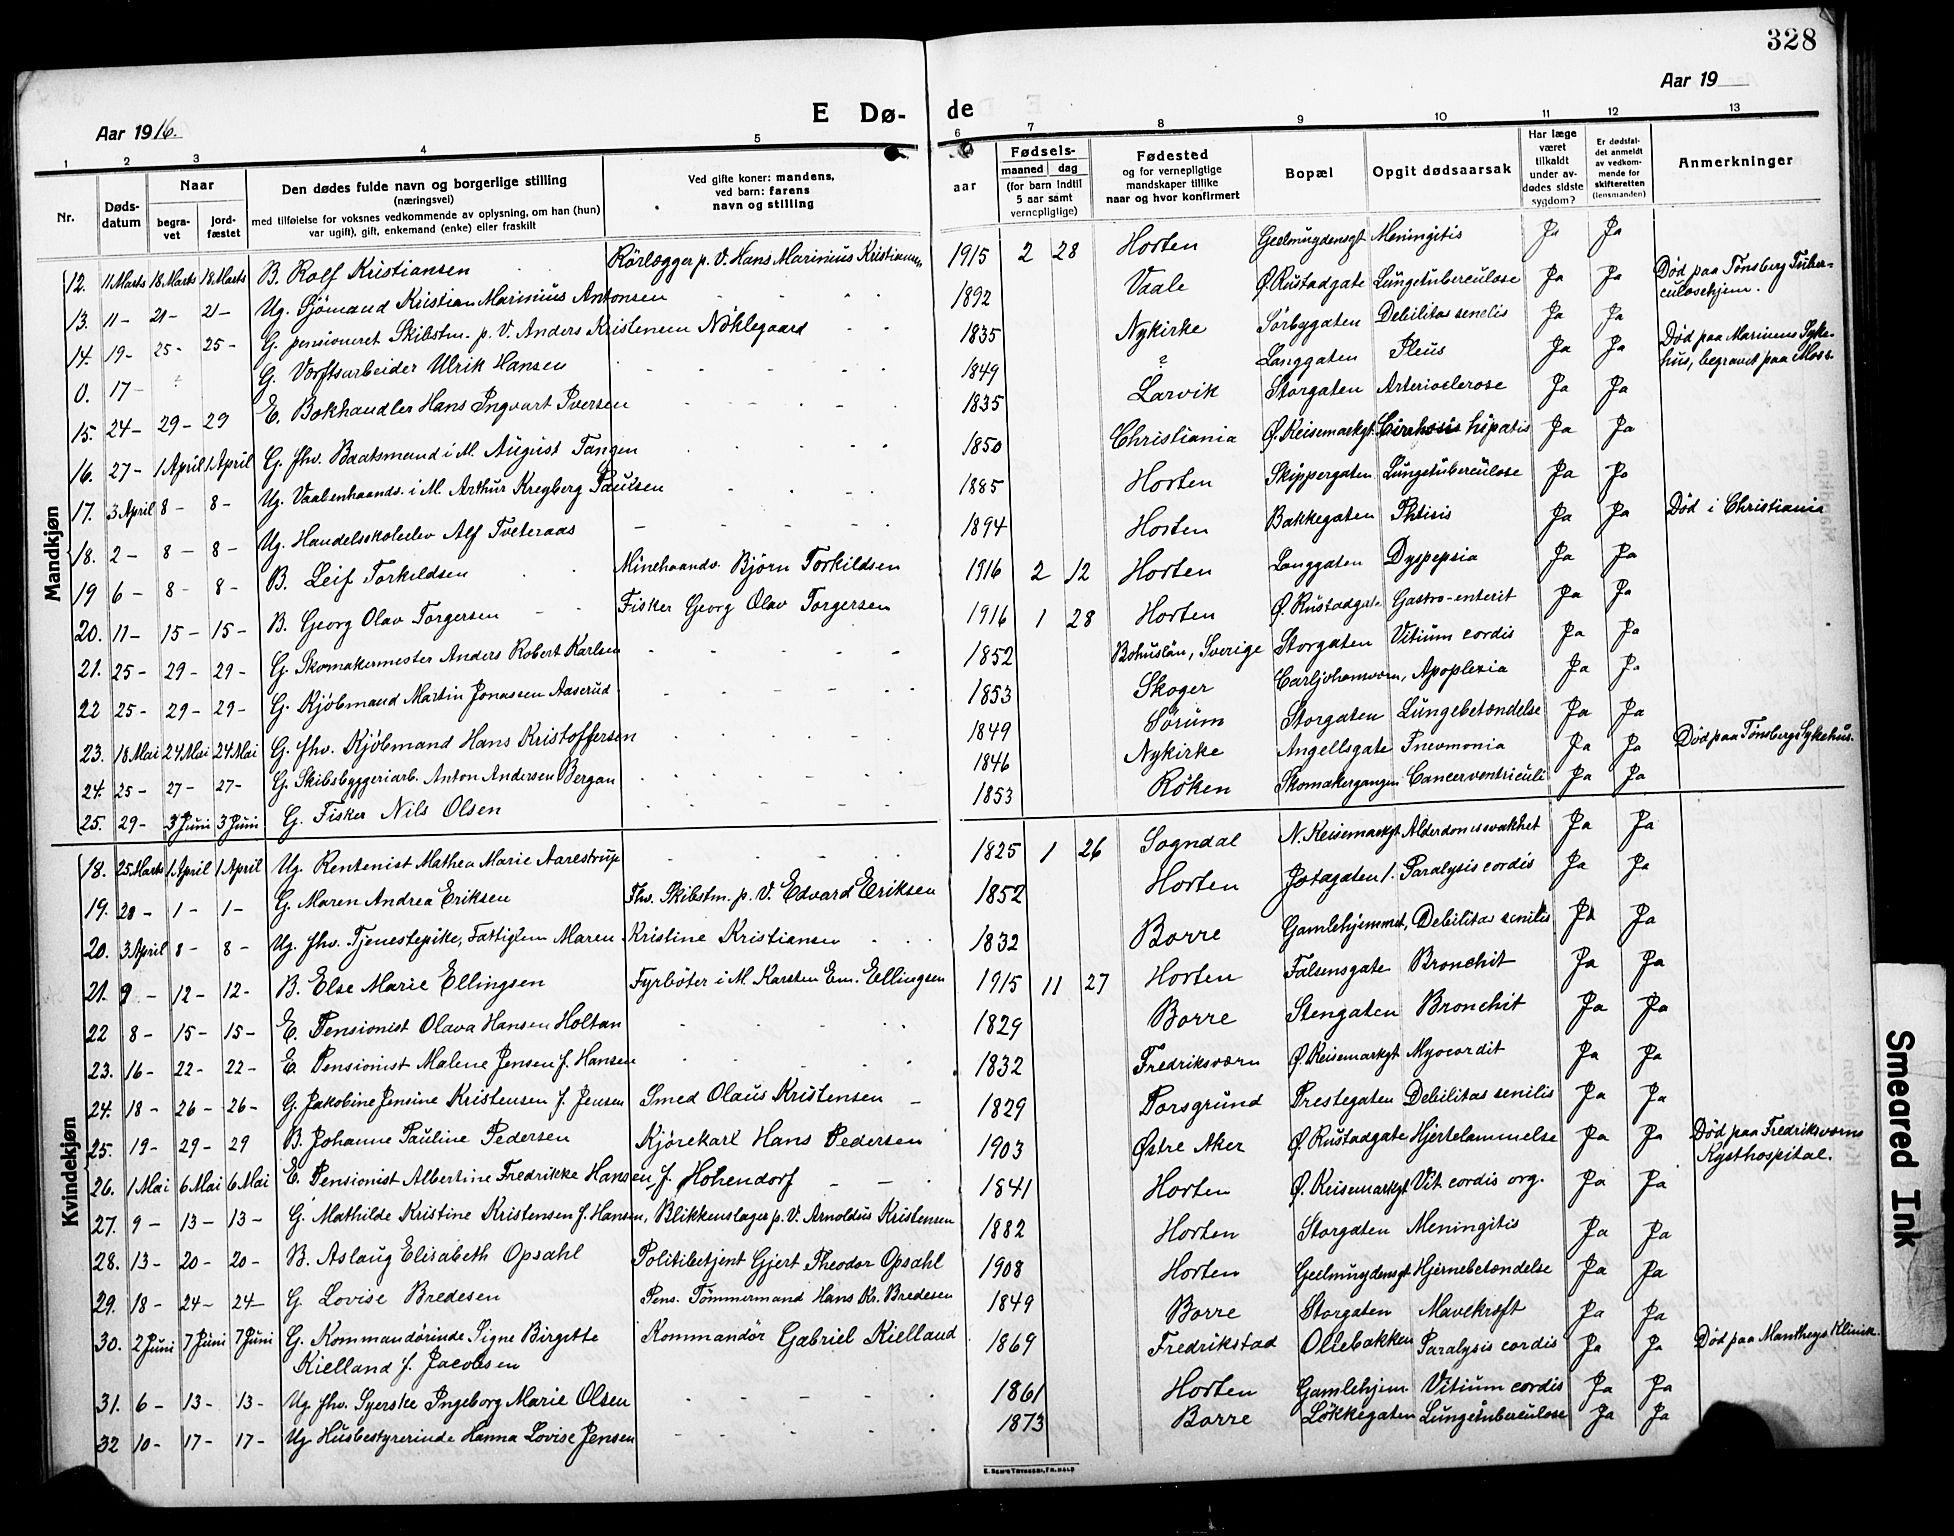 328
Aar 1916.
E Dø-
de
Aar 19
1 2 3 4 5 6 7 8 9 10 11 12 13
Nr.
Døds-
datum
Naar
begra-
vet
jord-
fæstet
Den dødes fulde navn og borgerlige stilling
(næringsvei)
med tilføielse for voksnes vedkommende av oplysning, om han (hun)
var ugift), gift, enkemand (enke) eller fraskilt
Ved gifte koner: mandens,
ved barn: farens
navn og stilling
Fødsels-
aar
maaned dag
(for barn indtil
5 aar samt
vernepligtige)
Fødested
og for vernepligtige
mandskaper tillike
naar og hvor konfirmert
Bopæl
Opgit dødsaarsak
Har læge
været
tilkaldt
under av-
dødes sidste
sygdom?
Er dødsfal-
det anmeldt
av vedkom-
mende for
skifteretten
(lensmanden)
Anmerkninger
Mandkjøn
12. 11 Marts 18 Marts 18 Marts B. Rolf Kristiansen Rörlægger p. V. Hans Marinius Kristiansen 1915 2 28 Horten Geelmuydensgt Meningitis Ja Ja
13. 11 - 21 - 21 - Ug. Sjömand Kristian Marinius Antonsen 1892 Vaale Ø. Rustadgate Lungetuberculose Ja Ja Död paa Tønsberg Tuber-
culosehjem.
14. 19 - 25 - 25 - G. pensioneret Skibstm. p. V. Anders Kristensen Nöklegaard 1835 Nykirke Sörbygaten Debilitas senelis Ja Ja
0. 17 - G. Værftsarbeider Ulrik Hansen 1849 ? Langgaten Ileus Ja Ja Död paa Marinens Syke-
hus, begravet paa Moss.
15. 24 - 29 - 29 E. Bokhandler Hans Ingvart Iversen 1835 Larvik Storgaten Arterioclerose Ja Ja
16. 27 - 1 April 1 April G. fhv. Baatsmand i M. August Tangen 1850 Christiania Ø. Keisemarkgt Cirrhosis hipatis Ja Ja
17. 3 April 8 - 8 - Ug. Vaabenhaandv. i M. Arthur Kregberg Paulsen 1885 Horten Skippergaten Lungetuberculose Ja Ja
18. 2 - 8 - 8 - Ug. Handelsskoleelev Alf Tveteraas 1894 Horten Bakkegaten Phtisis Ja Ja Død i Christiania
19 6 - 8 - 8 - B. Leif Torkildsen Minehaandv. Bjørn Torkildsen 1916 2 12 Horten Langgaten Dyspepsia Ja Ja
20. 11 - 15 - 15 - B. Georg Olav Torgersen Fisker Georg Olav Torgersen 1916 1 28 Horten Ø. Rustadgate Gastro-enterit Ja Ja
21. 25 - 29 - 29 - G. Skomakermester Anders Robert Karlsen 1852 Bohuslän, Sverige Storgaten Vitium cordis Ja Ja
22 25 - 29 - 29 - G. Kjöbmand Martin Jonassen Aaserud 1853 Skoger Carljohansværn, Apoplexia Ja Ja
23. 18 Mai 24 Mai 24 Mai G. fhv. Kjöbmand Hans Kristoffersen 1849 Sörum Storgaten Lungebetændelse Ja Ja
24. 25 - 27 - 27 - G. Skibsbyggeriarb. Anton Andersen Bergan 1846 Nykirke Angellsgate Pneumonia Ja Ja Död paa Tønsbergs Sykehus.
25. 29 - 3 Juni 3 Juni G. Fisker Nils Olsen 1853 Röken Skomakergangen Cancer ventriculi Ja Ja
Kvindekjøn
18. 25 Marts 1 April 1 April Ug. Rentenist Mathea Marie Aarestrup 1825 1 26 Sogndal N. Keisemarkgt Alderdomssvakhet Ja Ja
19. 28 - 1 - 1 - G. Maren Andrea Eriksen Fhv. Skibstm. p. V. Edvard Eriksen 1852 Horten Jotagaten 1. Paralysis cordis Ja Ja
20. 3 April 8 - 8 - Ug. fhv. Tjenestepike, Fattiglem Maren Kristine Kristiansen 1832 Borre Gamlehjemmet, Debilitas senilis Ja Ja
21. 9 - 12 - 12 - B. Else Marie Ellingsen Fyrböter i M. Karsten Em. Ellingsen 1915 11 27 Horten Falsensgate Bronchit Ja Ja
22 8 - 15 - 15 - E. Pensionist Olava Hansen Holtan 1829 Borre Stengaten Bronchit Ja Ja
23. 16 - 22 - 22 - E. Pensionist Malene Jensen f. Hansen 1832 Fredriksværn Ø. Keisemarkgt Myocordit Ja Ja
24. 18 - 26 - 26 - G. Jakobine Jensine Kristensen f. Jensen Smed Olaus Kristensen 1829 Porsgrund Prestegaten Debilitas senilis Ja Ja
25. 19 - 29 - 29 B. Johanne Pauline Pedersen Kjörekarl Hans Pedersen 1903 Østre Aker Ø. Rustadgate Hjertelammelse Ja Ja Död paa Fredriksværns
Kysthospital.
26. 1 Mai 6 Mai 6 Mai E. Pensionist Albertine Fredrikke Hansen, f. Hohendorf 1841 Horten Ø. Keisemarkgt Vit. cordis org. Ja Ja
27. 9 - 13 - 13 - G. Mathilde Kristine Kristensen f. Hansen, Blikkenslager p. V. Arnoldus Kristensen 1882 Horten Storgaten Meningitis Ja Ja
28. 13 - 20 - 20 - B. Aslaug Elisabeth Opsahl Politibetjent Gjert Theodor Opsahl 1908 Horten Geelmuydensgt Hjernebetændelse Ja Ja
29. 18 - 24 - 24 - G. Lovise Bredesen Pens. Tömmermand Hans Kr. Bredesen 1849 Borre Storgaten Mavekræft Ja Ja
30. 2 Juni 7 Juni 7 Juni G. Kommandörinde Signe Birgitte Kommandör Gabriel Kielland 1869 Fredrikstad Ollebakken Paralysis cordis Ja Ja Död paa Mantheys Klinik.
Kielland f. Jacobsen
31. 6 - 13 - 13 - Ug. fhv. Syerske Ingeborg Marie Olsen 1861 Horten Gamlehjem. Vitium cordis Ja Ja
32 10 - 17 - 17 - Ug Husbestyrerinde Hanna Lovise Jensen 1873 Borre Løkkegaten Lungetuberculose Ja Ja
E. SEM'S TRYKKERI, FR.HALD
Smeared Ink